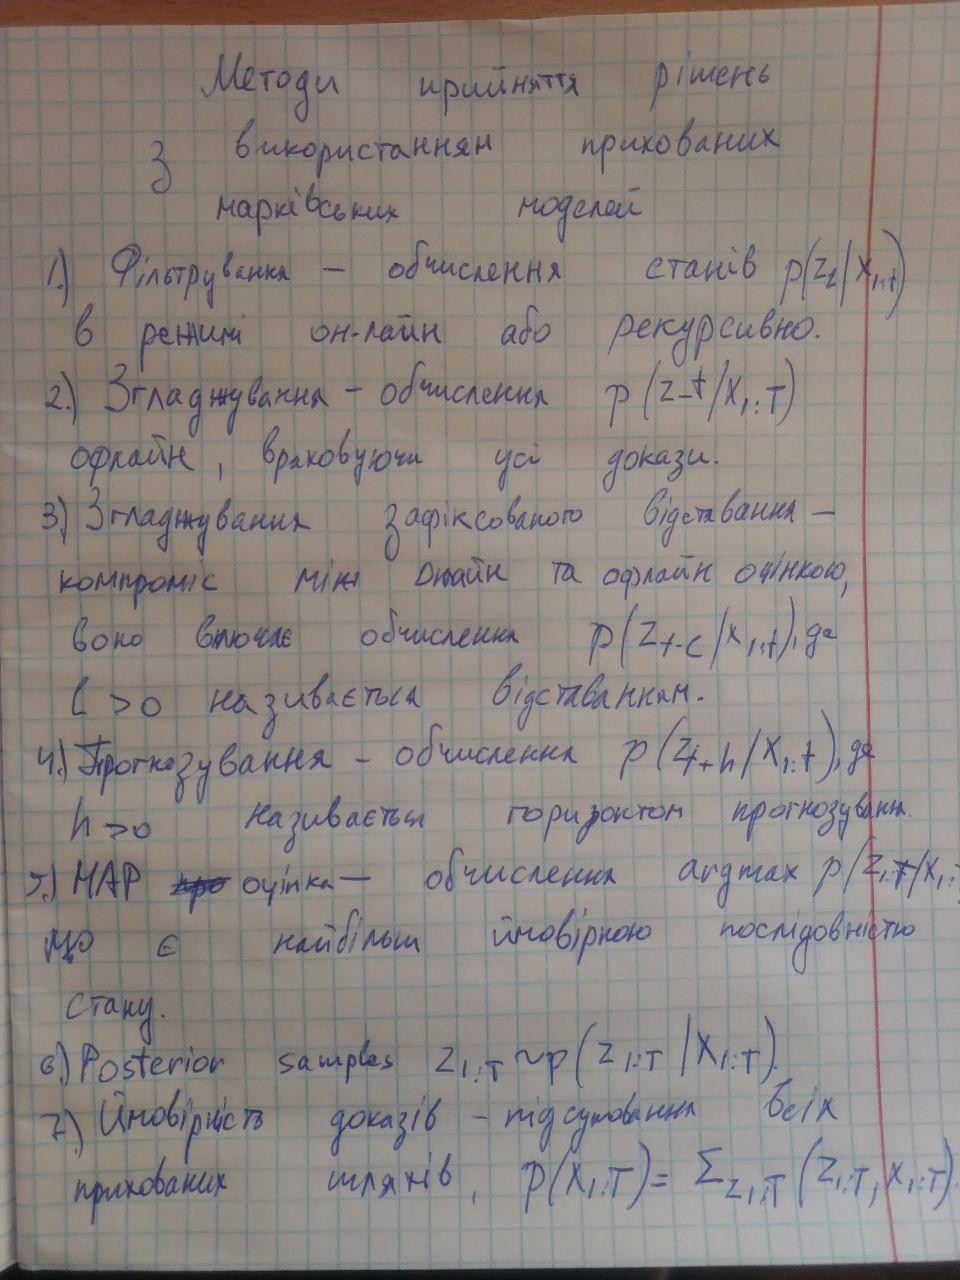 Методи прийняття рішень
З використанням прихованих
марківських моделей
1.) Фільтрування – обчислення станів p(zt/X1:t)
в режимі он-лайн або рекурсивно.
2.) Згладжування – обчислення p(z-t/X1:T)
офлайн, враховуючи усі докази.
3) Згладжування зафіксованого відставання –
компроміс між онлайн та офлайн оцінкою,
воно включає обчислення p(zt-l/x1:t), де
l>0 називається відставанням.
4.) Прогнозування – обчислення p(zt+h/X1:t), де
h>0 називається горизонтом прогнозування.
5.) MAP оцінка – обчислення argmax p(z1:T/X1:
що є найбільш ймовірною послідовністю
стану.
6) Posterior samples z1:T ~p(z1:T/X1:T).
7.) Ймовірність доказів – підсумовання всіх
прихованих шляхів, p(X1:T)= Σz1:T(z1:T,x1:T).